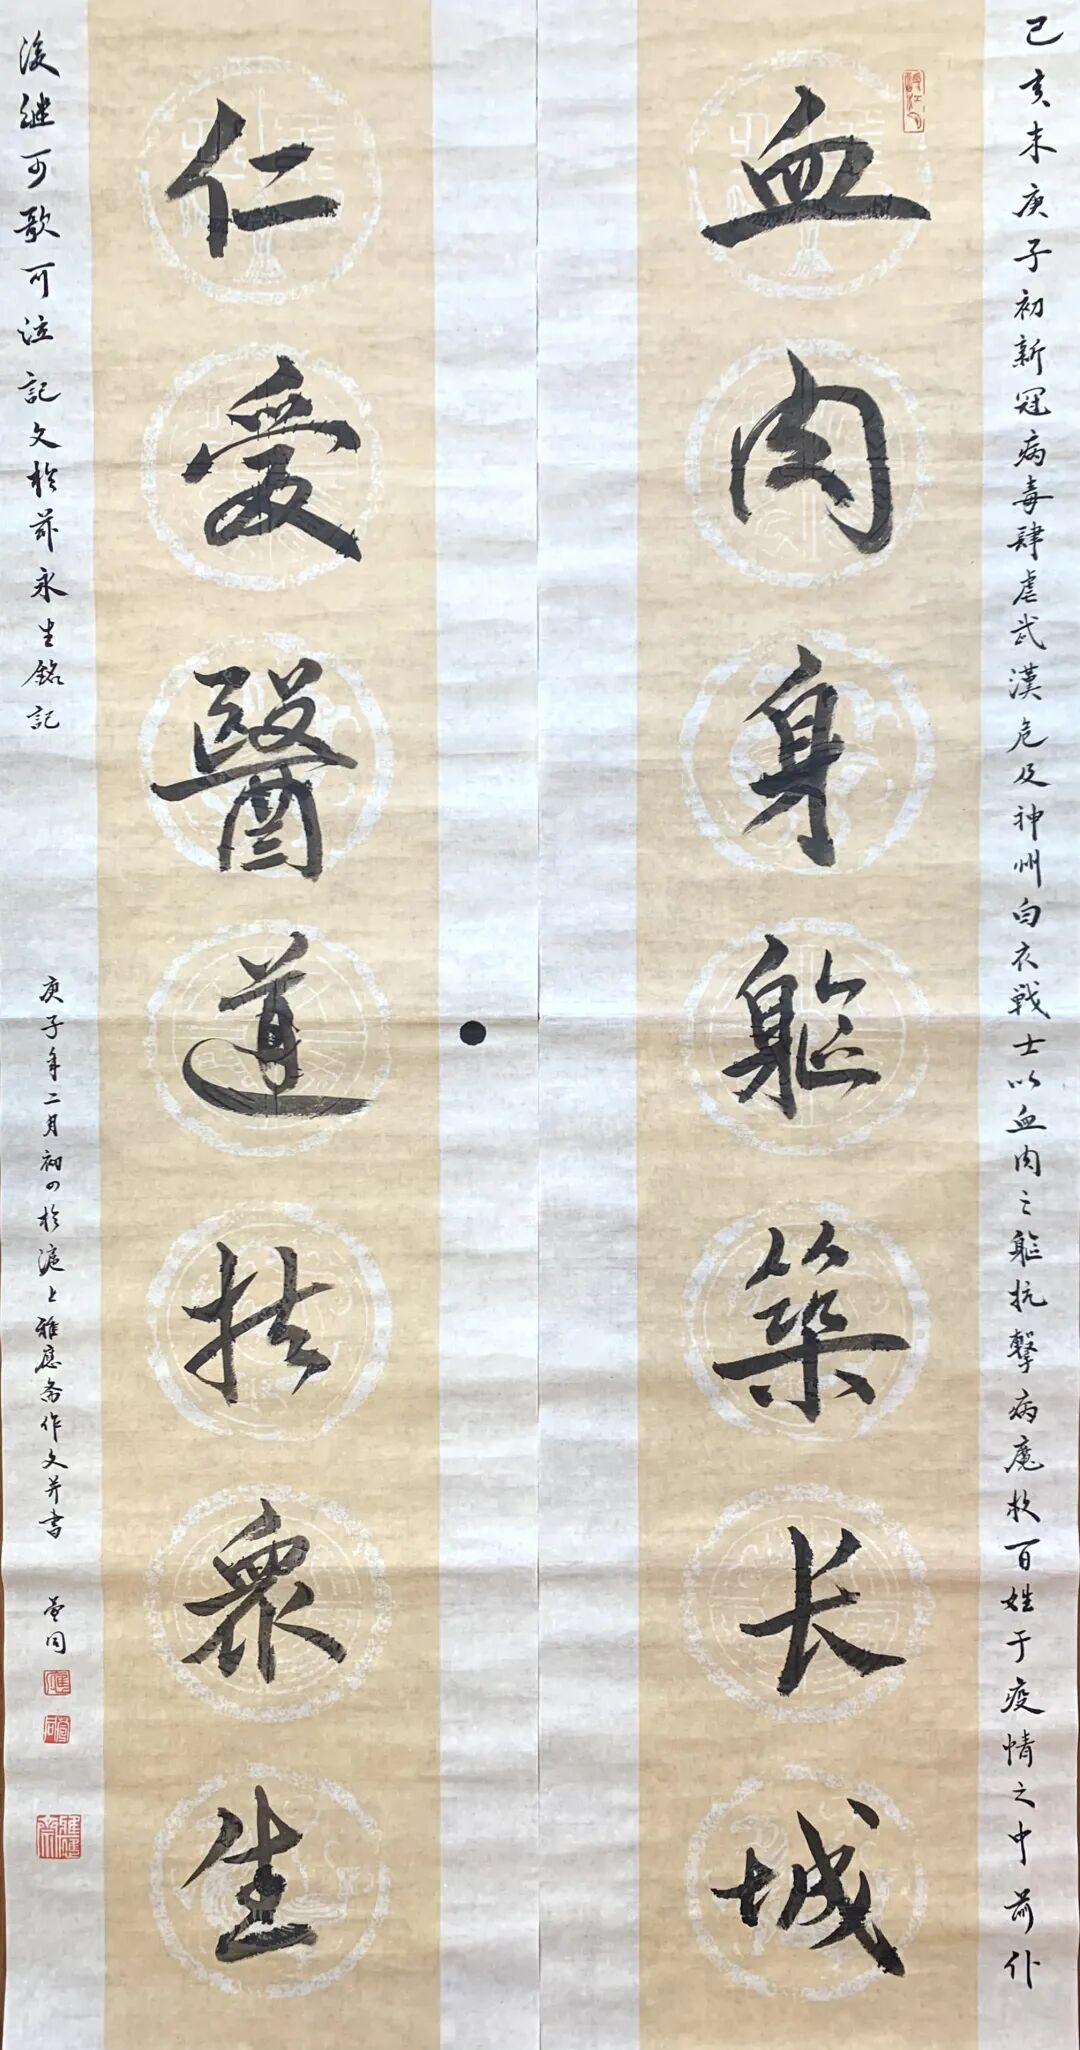 己亥末庚子初新冠病毒肆虐武漢危及神州白衣戰士以血肉之軀抗擊病魔救百姓于疫情之中前仆
血肉身軀築长城
仁爱醫道扶衆生
後继可歌可泣記文於前永生銘記
庚子年二月初四於滬上雅應斋作文并書